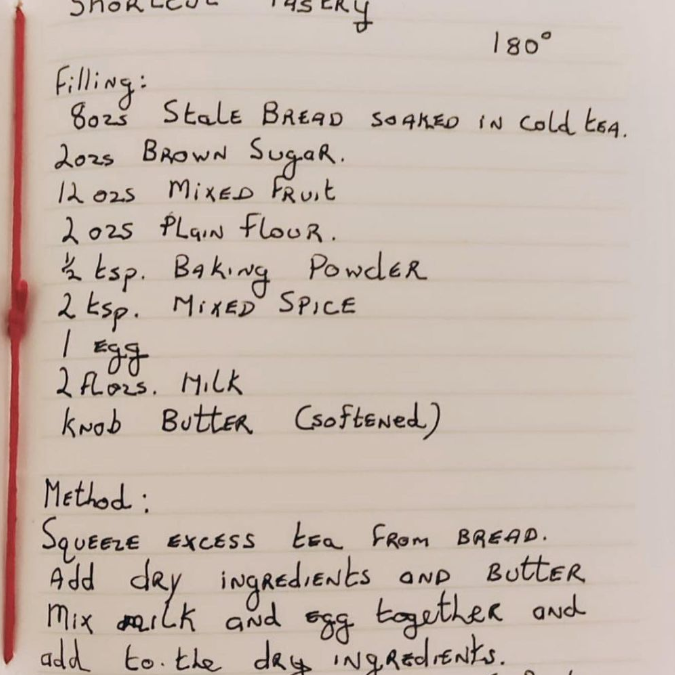 Shortcut Pastery
180°
Filling:
8ozs Stale Bread soaked in cold tea.
2ozs Brown Sugar.
12 ozs Mixed Fruit
2 ozs Plain flour.
½ tsp. Baking Powder
2 tsp. Mixed Spice
1 egg
2 flozs. Milk
Knob Butter (softened)
Method:
Squeeze excess tea from bread.
Add dry ingredients and Butter
Mix milk and egg together and
add to the dry ingredients.